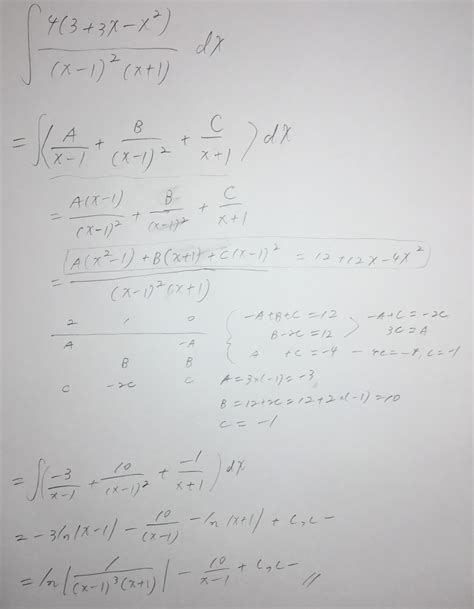 ∫ 4(3+3x-x²) / (x-1)²(x+1) dx
= ∫( A/(x-1) + B/(x-1)² + C/(x+1) ) dx
= A(x-1)/(x-1)² + B/(x-1)² + C/(x+1)
= A(x²-1)+B(x+1)+C(x-1)² / (x-1)²(x+1) = 12+12x-4x²
2 1 0
A -A
B B
C -2C C
-A+B+C=12
B-2C=12
A +C=-4
-A+C=-2C
3C=A
4C=-4, C=-1
A=3×(-1)=-3
B=12+2C=12+2×(-1)=10
C=-1
= ∫( -3/(x-1) + 10/(x-1)² + -1/(x+1) ) dx
= -3ln|x-1| - 10/(x-1) - ln|x+1| +
= ln| 1/((x-1)³(x+1)) | - 10/(x-1) +